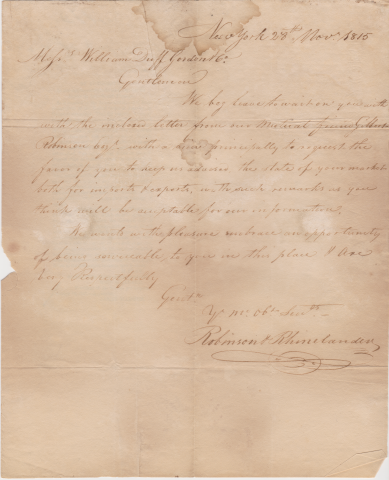 New York 28th Novr 1816
Messrs William Duff Gordon & Co
Gentlemen
We beg leave to wait on you
with the inclosed letter from our mutual friend
Robinson Esqr with a view principally to request the
favor of you to keep us advised the state of your market
both for imports & exports, with such remarks as you
think will be acceptable for our information,
We will with pleasure embrace an opportunity
of being serviceable to you in this place & are
Very Respectfully
Gentn
Yr Mo. Obt Servts
Robinson & Rhinelander